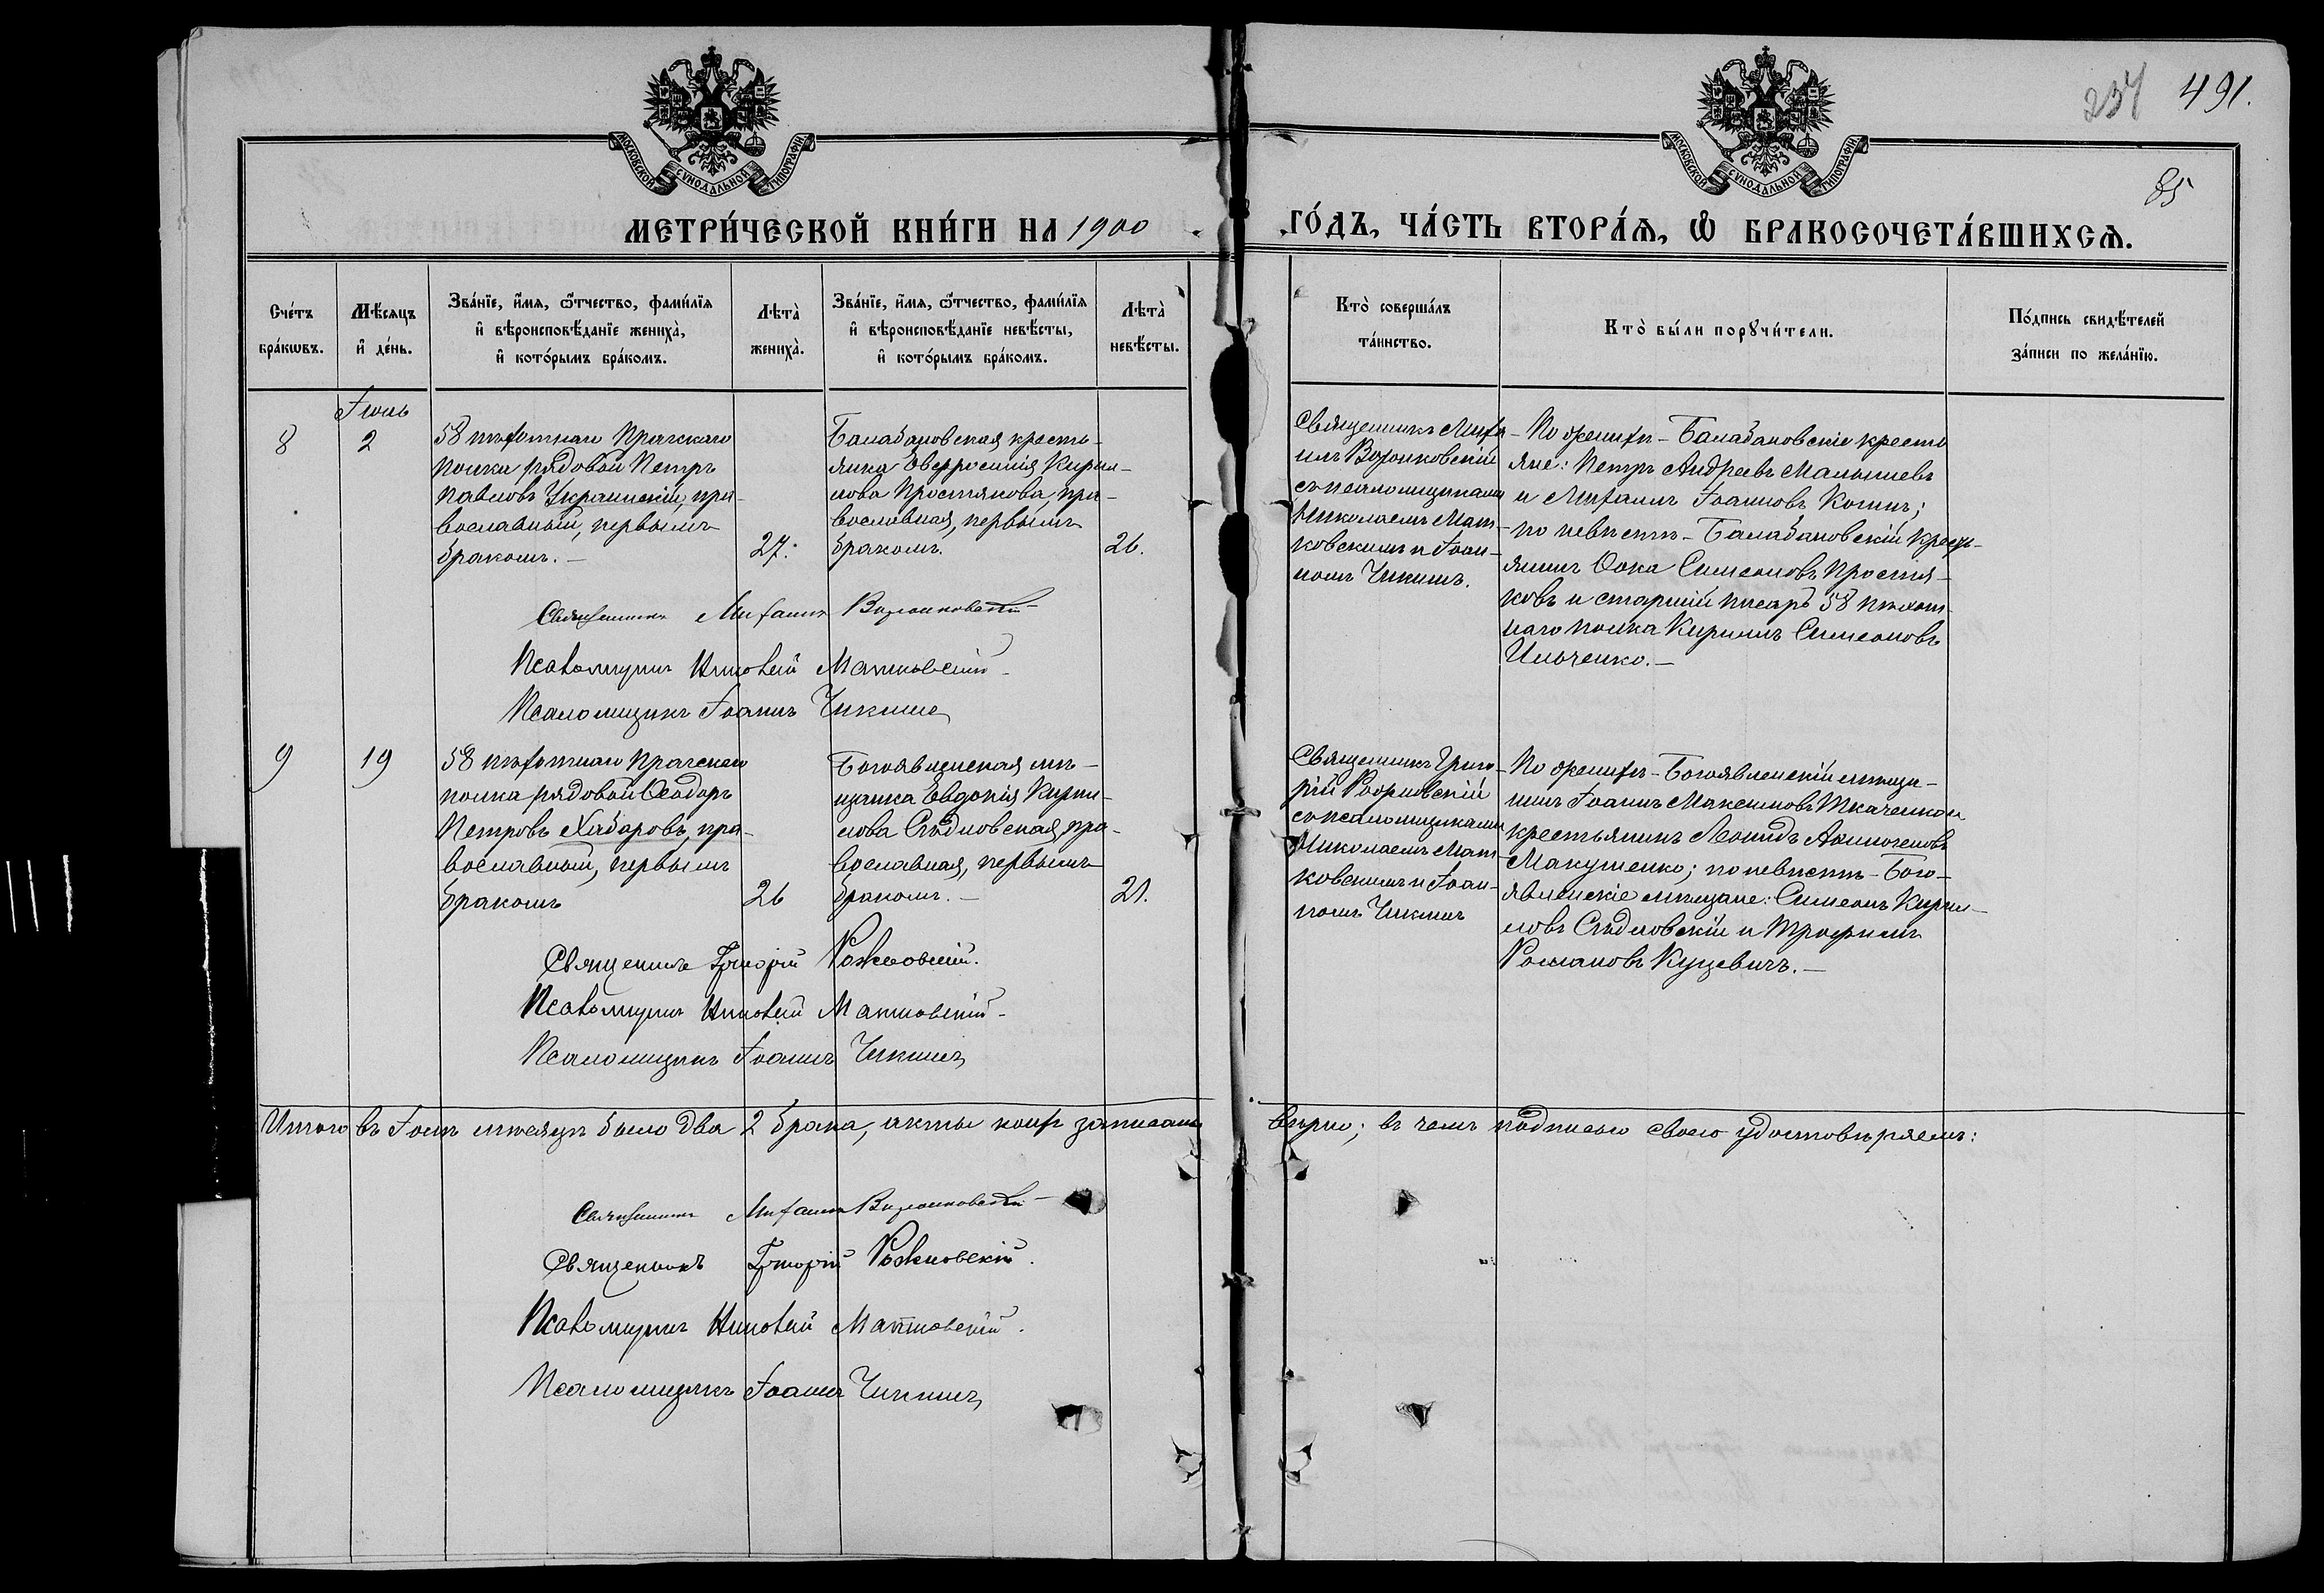 234 491.
85
МОСКОВСКОЙ СѴНОДАЛЬНОЙ ТИПОГРАФІИ
МОСКОВСКОЙ СѴНОДАЛЬНОЙ ТИПОГРАФІИ
МЕТРИ́ЧЕСКОЙ КНИ́ГИ НА 1900
ГО́ДЪ, ЧА́СТЬ ВТОРА́Ѧ, Ѽ БРАКОСОЧЕТА́ВШИХСѦ.
Сче́тъ бра́кѡвъ.
Мѣ́сяцъ и҆ де́нь.
Зва́нїе, и҆́мѧ, ѻ҆́тчество, фами́лїѧ
и҆ вѣроисповѣ́данїе жениха̀,
и҆ кото́рымъ бра́комъ.
Лѣта̀ жениха̀.
Зва́нїе, и҆́мѧ, ѻ҆́тчество, фами́лїѧ
и҆ вѣроисповѣ́данїе невѣ́сты,
и҆ кото́рымъ бра́комъ.
Лѣта̀ невѣ́сты.
Кто̀ соверша́лъ
та́инство.
Кто̀ бы́ли порꙋчи́тели.
По́дпись свидѣ́телей
за́писи по жела́нїю.
Іюнь
8
2
58 пѣхотнаго Прагскаго
полка рядовой Петръ
Павловъ Украинскій, пра-
вославный, первымъ
бракомъ.—
27.
Балабановская кресть-
янка Евфросинія Кирил-
лова Простякова, пра-
вославная, первымъ
бракомъ.
26.
Священникъ Миха-
илъ
съ псаломщиками
Николаемъ Мат-
ковскимъ и Іоан-
номъ
По женихѣ - Балабановскіе кресть
яне: Петръ Андреевъ Малышевъ
и Михаилъ Іоанновъ
по невѣстѣ - Балабановскій кресть-
янинъ Ѳока Симеоновъ Простя-
ковъ и старшій писарь 58 пѣхот-
наго полка Кириллъ Симеоновъ
Ильченко.—
Священникъ Михаилъ
Псаломщикъ Николай Матковскій
Псаломщикъ Іоаннъ
9
19
58 пѣхотнаго Прагскаго
полка рядовой Ѳеодоръ
Петровъ Хабаровъ, пра-
вославный, первымъ
бракомъ
26
Богоявленская мѣ-
щанка Евдокія Кирил-
лова Слѣдловская, пра-
вославная, первымъ
бракомъ.—
21.
Священникъ Григо-
рій
съ псаломщиками
Николаемъ Мат-
ковскимъ и Іоан-
номъ
По женихѣ - Богоявленскій мѣща-
нинъ Іоаннъ Максимовъ Ткаченко и
крестьянинъ Леонидъ
Макушенко; по невѣстѣ - Бого-
явленскіе мѣщане: Симеонъ Кирил-
ловъ Слѣдловскій и Трофимъ
Романовъ Куцевичъ.—
Священникъ Григорій Рожновскій.
Псаломщикъ Николай Матковскій
Псаломщикъ Іоаннъ
Итого въ Іюнѣ мѣсяцѣ было два 2 брака, акты коихъ записаны вѣрно; въ чемъ подписью своею удостовѣряемъ:
Священникъ Михаилъ
Священникъ Григорій Рожновскій.
Псаломщикъ Николай Матковскій.
Псаломщикъ Іоаннъ